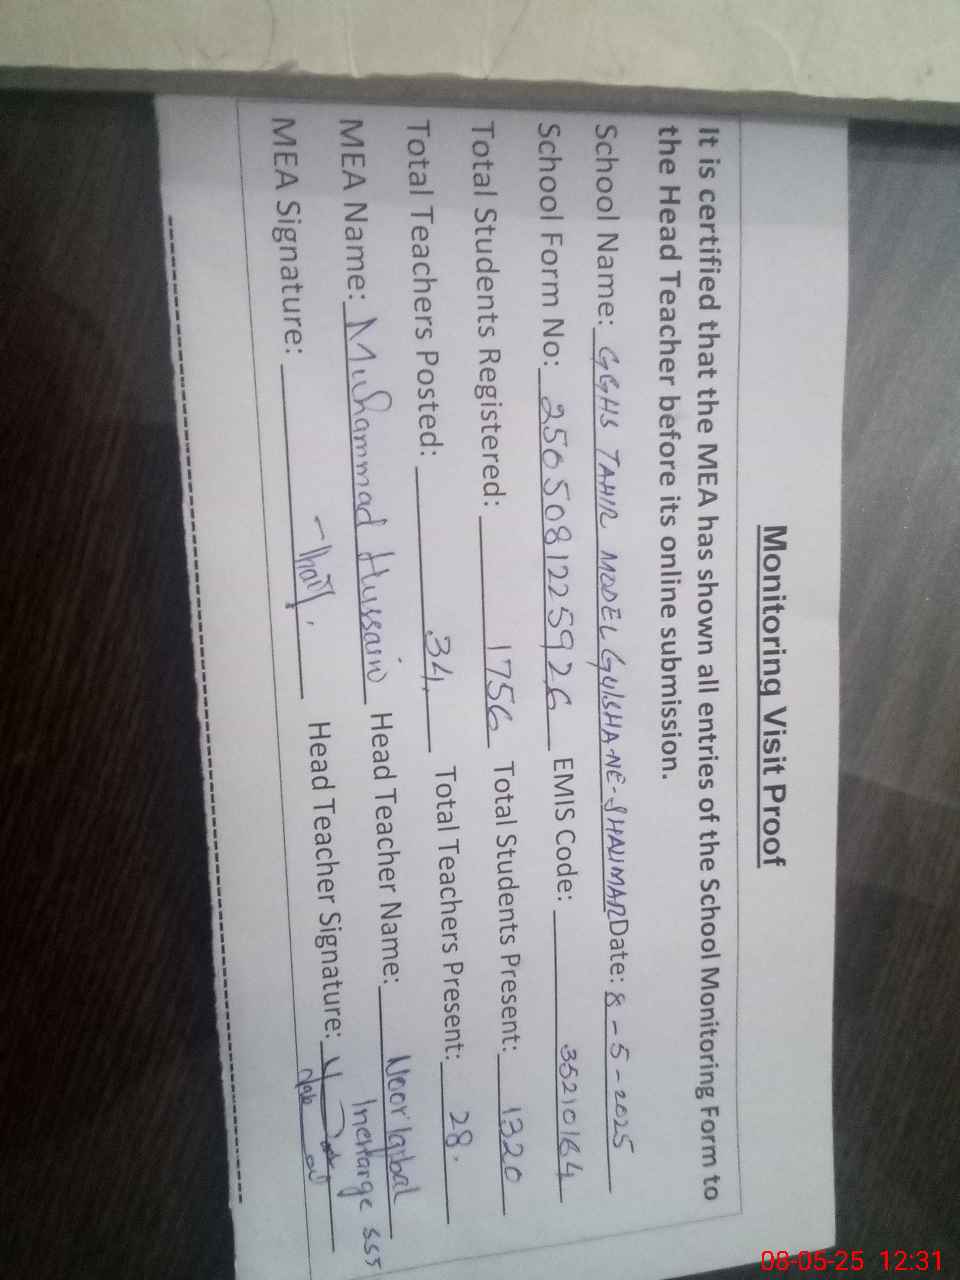 Monitoring Visit Proof
It is certified that the MEA has shown all entries of the School Monitoring Form to
the Head Teacher before its online submission.
School Name: GGHS TAHIR MODEL GULSHA-NE-SHALIMAR Date: 8-5-2025
School Form No: 2505081225926 EMIS Code: 35210164
Total Students Registered: 1756 Total Students Present: 1320
Total Teachers Posted: 34. Total Teachers Present: 28.
MEA Name: Muhammad Hussain Head Teacher Name: Noor Iqbal
Incharge SST
MEA Signature: Head Teacher Signature:
08-05-25 12:31